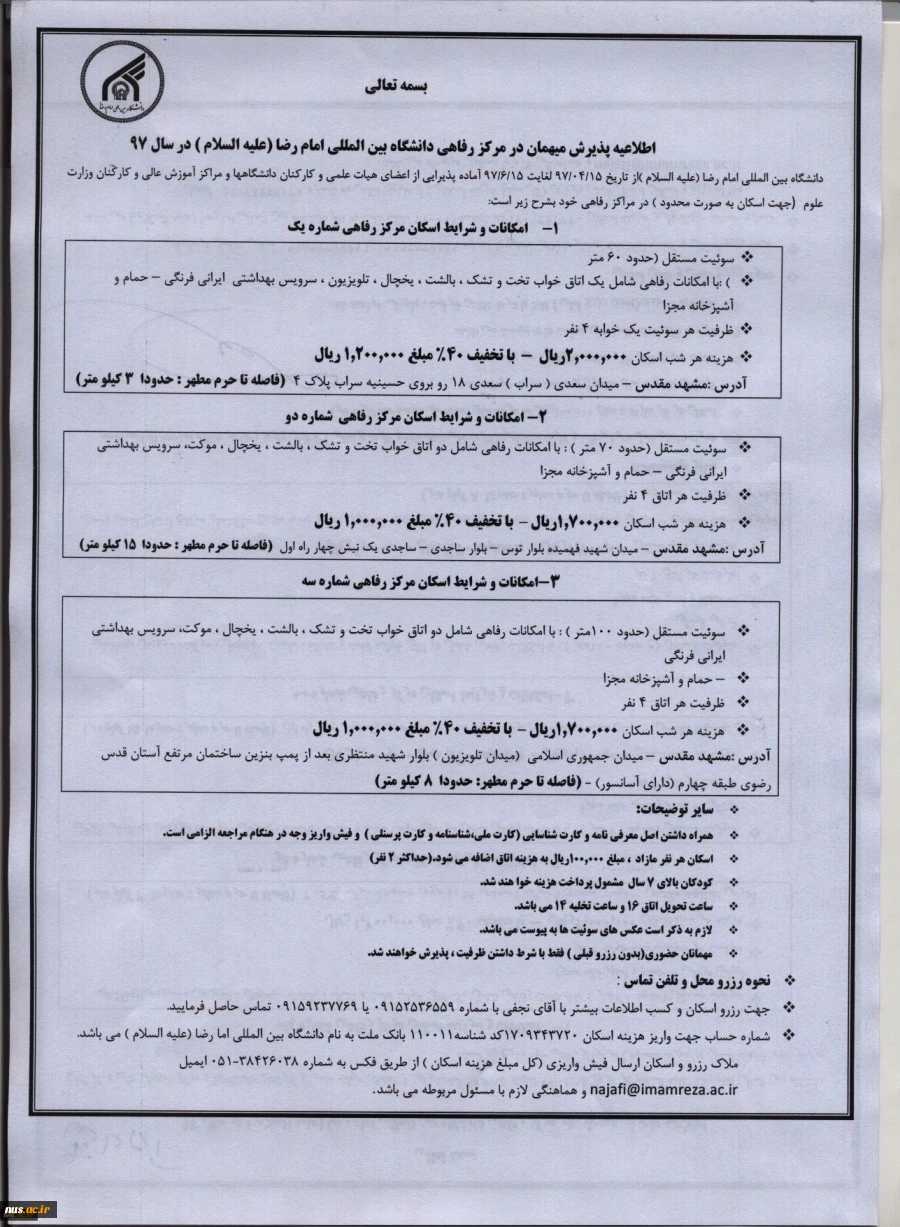 بسمه تعالی
اطلاعیه پذیرش میهمان در مرکز رفاهی دانشگاه بین المللی امام رضا (علیه السلام ) در سال ۹۷
دانشگاه بین المللی امام رضا (علیه السلام )از تاریخ ۹۷/۰۴/۱۵ لغایت ۹۷/۶/۱۵ آماده پذیرایی از اعضای هیات علمی و کارکنان دانشگاهها و مراکز آموزش عالی و کارکنان وزارت
علوم (جهت اسکان به صورت محدود ) در مراکز رفاهی خود بشرح زیر است:
۱- امکانات و شرایط اسکان مرکز رفاهی شماره یک
❖ سوئیت مستقل (حدود ۶۰ متر
❖ ) :با امکانات رفاهی شامل یک اتاق خواب تخت و تشک ، بالشت ، یخچال ، تلویزیون ، سرویس بهداشتی ایرانی فرنگی – حمام و
آشپزخانه مجزا
❖ ظرفیت هر سوئیت یک خوابه ۴ نفر
❖ هزینه هر شب اسکان ۲,۰۰۰,۰۰۰ریال – با تخفیف ۴۰٪ مبلغ ۱,۲۰۰,۰۰۰ ریال
آدرس :مشهد مقدس – میدان سعدی ( سراب ) سعدی ۱۸ رو بروی حسینیه سراب پلاک ۴ (فاصله تا حرم مطهر : حدودا ۳ کیلو متر)
۲- امکانات و شرایط اسکان مرکز رفاهی شماره دو
❖ سوئیت مستقل (حدود ۷۰ متر ) : با امکانات رفاهی شامل دو اتاق خواب تخت و تشک ، بالشت ، یخچال ، موکت، سرویس بهداشتی
ایرانی فرنگی – حمام و آشپزخانه مجزا
❖ ظرفیت هر اتاق ۴ نفر
❖ هزینه هر شب اسکان ۱,۷۰۰,۰۰۰ریال – با تخفیف ۴۰٪ مبلغ ۱,۰۰۰,۰۰۰ ریال
آدرس :مشهد مقدس – میدان شهید فهمیده بلوار توس – بلوار ساجدی – ساجدی یک نبش چهار راه اول (فاصله تا حرم مطهر : حدودا ۱۵ کیلو متر)
۳-امکانات و شرایط اسکان مرکز رفاهی شماره سه
❖ سوئیت مستقل (حدود ۱۰۰متر ) : با امکانات رفاهی شامل دو اتاق خواب تخت و تشک ، بالشت ، یخچال ، موکت، سرویس بهداشتی
ایرانی فرنگی
❖ – حمام و آشپزخانه مجزا
❖ ظرفیت هر اتاق ۴ نفر
❖ هزینه هر شب اسکان ۱,۷۰۰,۰۰۰ریال – با تخفیف ۴۰٪ مبلغ ۱,۰۰۰,۰۰۰ ریال
آدرس :مشهد مقدس – میدان جمهوری اسلامی (میدان تلویزیون ) بلوار شهید منتظری بعد از پمپ بنزین ساختمان مرتفع آستان قدس
رضوی طبقه چهارم (دارای آسانسور) - (فاصله تا حرم مطهر: حدودا ۸ کیلو متر)
❖ سایر توضیحات:
❖ همراه داشتن اصل معرفی نامه و کارت شناسایی (کارت ملی،شناسنامه و کارت پرسنلی ) و فیش واریز وجه در هنگام مراجعه الزامی است.
❖ اسکان هر نفر مازاد ، مبلغ ۱۰۰,۰۰۰ریال به هزینه اتاق اضافه می شود.(حداکثر ۲ نفر)
❖ کودکان بالای ۷ سال مشمول پرداخت هزینه خواهند شد.
❖ ساعت تحویل اتاق ۱۶ و ساعت تخلیه ۱۴ می باشد.
❖ لازم به ذکر است عکس های سوئیت ها به پیوست می باشد.
❖ مهمانان حضوری(بدون رزرو قبلی ) فقط با شرط داشتن ظرفیت ، پذیرش خواهند شد.
❖ نحوه رزرو محل و تلفن تماس :
❖ جهت رزرو اسکان و کسب اطلاعات بیشتر با آقای نجفی با شماره ۰۹۱۵۲۵۳۶۵۵۹ یا ۰۹۱۵۹۲۳۷۷۶۹ تماس حاصل فرمایید.
❖ شماره حساب جهت واریز هزینه اسکان ۱۷۰۹۳۴۳۷۲۰کد شناسه۱۱۰۰۱۱ بانک ملت به نام دانشگاه بین المللی اما رضا (علیه السلام ) می باشد.
ملاک رزرو و اسکان ارسال فیش واریزی (کل مبلغ هزینه اسکان ) از طریق فکس به شماره ۳۸۴۲۶۰۳۸-۰۵۱ ایمیل
najafi@imamreza.ac.ir و هماهنگی لازم با مسئول مربوطه می باشد.
nus.ac.ir